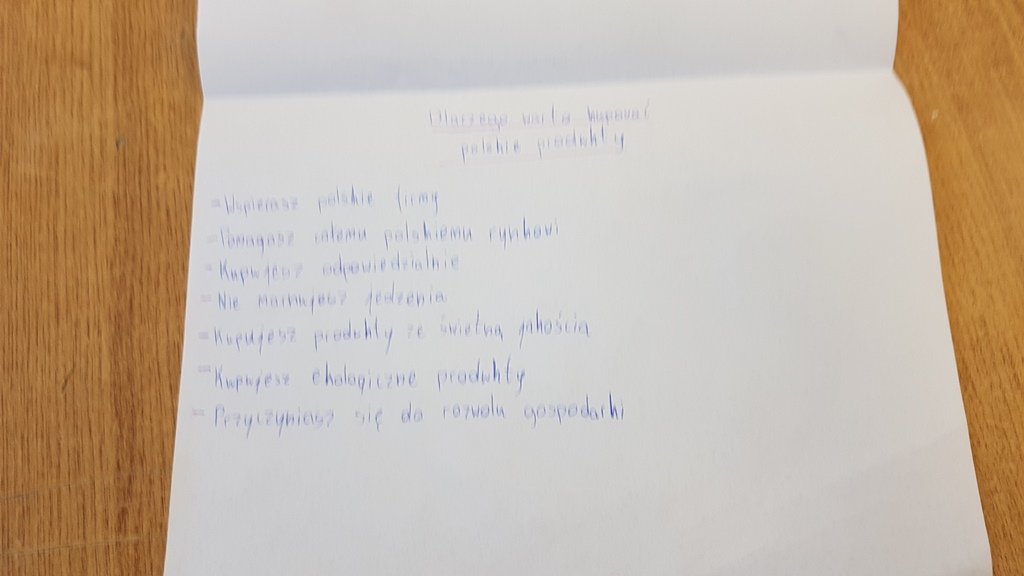 Dlaczego warto kupować
polskie produkty
- Wspierasz polskie firmy
- Pomagasz całemu polskiemu rynkowi
- Kupujesz odpowiedzialnie
- Nie marnujesz jedzenia
- Kupujesz produkty ze świetną jakością
- Kupujesz ekologiczne produkty
- Przyczyniasz się do rozwolu gospodarki